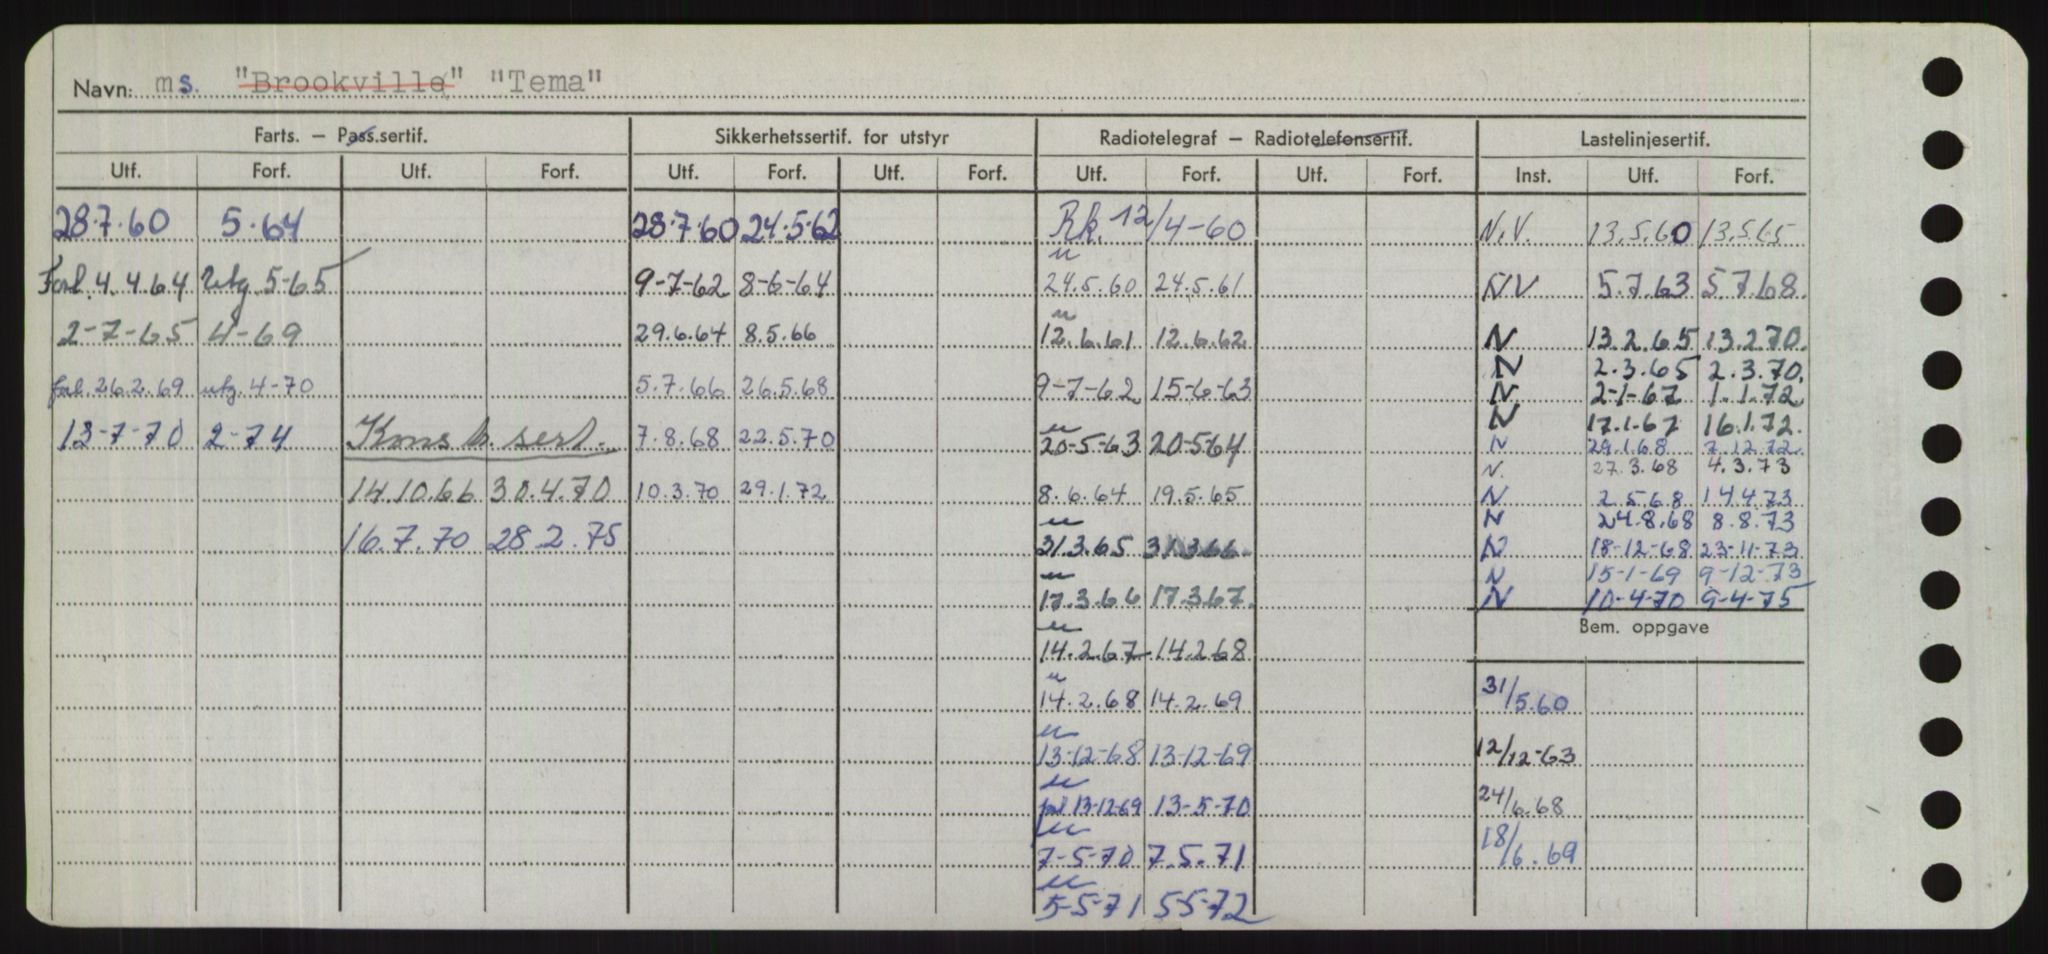 Navn: ms. "Brookville" "Tema"
Farts. — Pass.sertif. Sikkerhetssertif. for utstyr Radiotelegraf — Radiotelefonsertif. Lastelinjesertif.
Utf. Forf. Utf. Forf. Utf. Forf. Utf. Forf. Utf. Forf. Utf. Forf. Inst. Utf. Forf.
28.7.60 5.64 28.7.60 24.5.62 Rk. 12/4-60 N.V. 13.5.60 13.5.65
Forl. 4.4.64 Utg 5-65 9-7-62 8-6-64 24.5.60 24.5.61 NV 5.7.63 5.7.68.
2-7-65 4-69 29.6.64 8.5.66 12.6.61 12.6.62 N 13.2.65 13.2.70.
N 2.3.65 2.3.70.
forl. 26.2.69 utg. 4-70 5.7.66 26.5.68 9-7-62 15-6-63 N 2-1-67 1.1.72
N 17.1.67 16.1.72.
13-7-70 2-74 Konstr. sert. 7.8.68 22.5.70 20-5-63 20-5-64 N 29.1.68 7.12.72.
N. 27.3.68 4.3.73
14.10.66 30.4.70 10.3.70 29.1.72 8.6.64 19.5.65 N 2.5.68 14.4.73
N 24.8.68 8.8.73
16.7.70 28.2.75 31.3.65 31.3.66 N 18-12-68 23-11-73
N 15-1-69 9-12-73
17.3.66 17.3.67. N 10-4-70 9-4-75
Bem. oppgave
14.2.67 14.2.68
14.2.68 14.2.69 31/5.60
13-12-68 13-12-69 12/12-63
forl 13-12-69 13-5-70 24/6.68
7-5-70 7.5.71 18/6.69
5-5-71 5-5-72